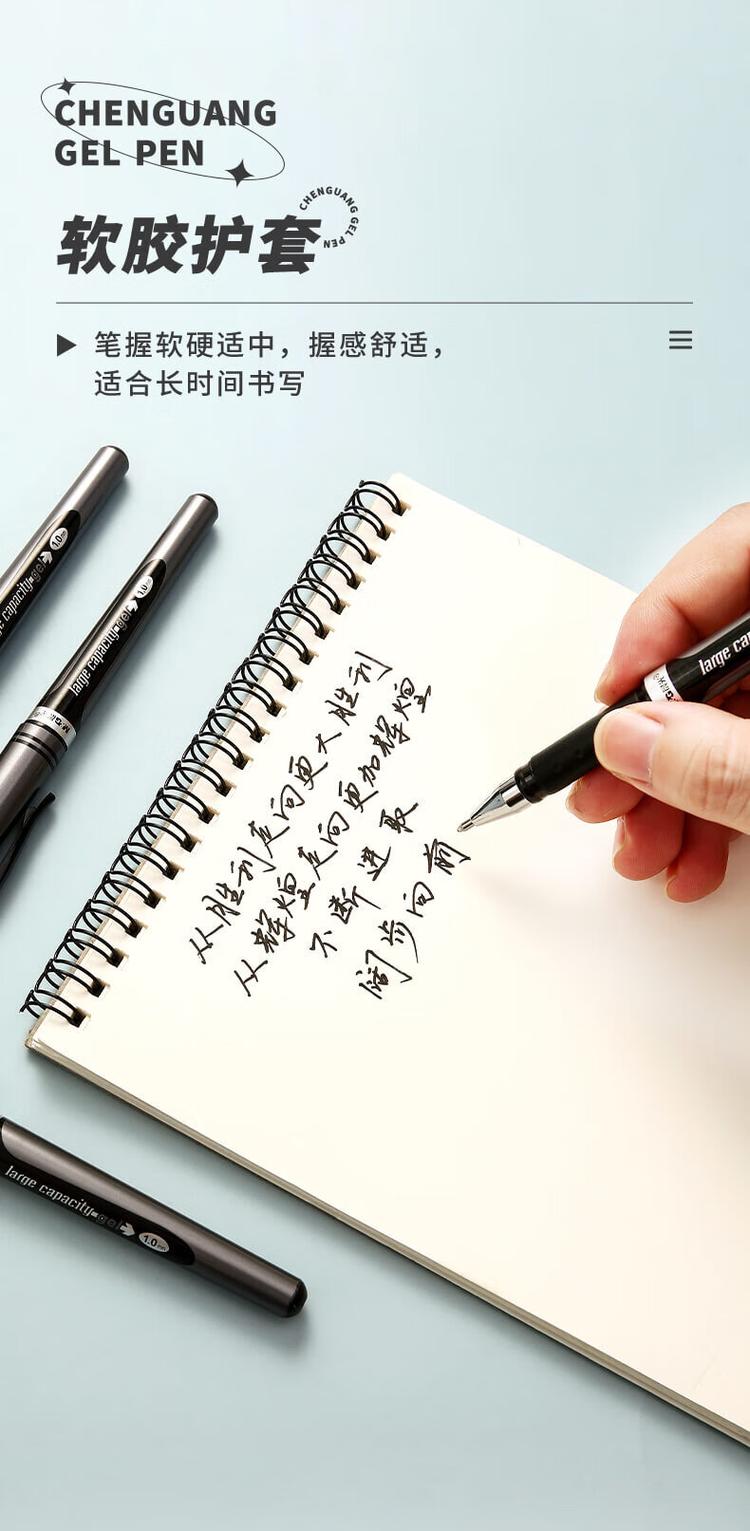 CHENGUANG
GEL PEN
CHENGUANG GEL PEN
软胶护套
笔握软硬适中，握感舒适，
适合长时间书写
large capacity-gel 1.0
large capacity-gel 1.0
M&G
从胜利走向更大胜利
从辉煌走向更加辉煌
不断进取
阔步向前
large ca
large capacity-gel 1.0